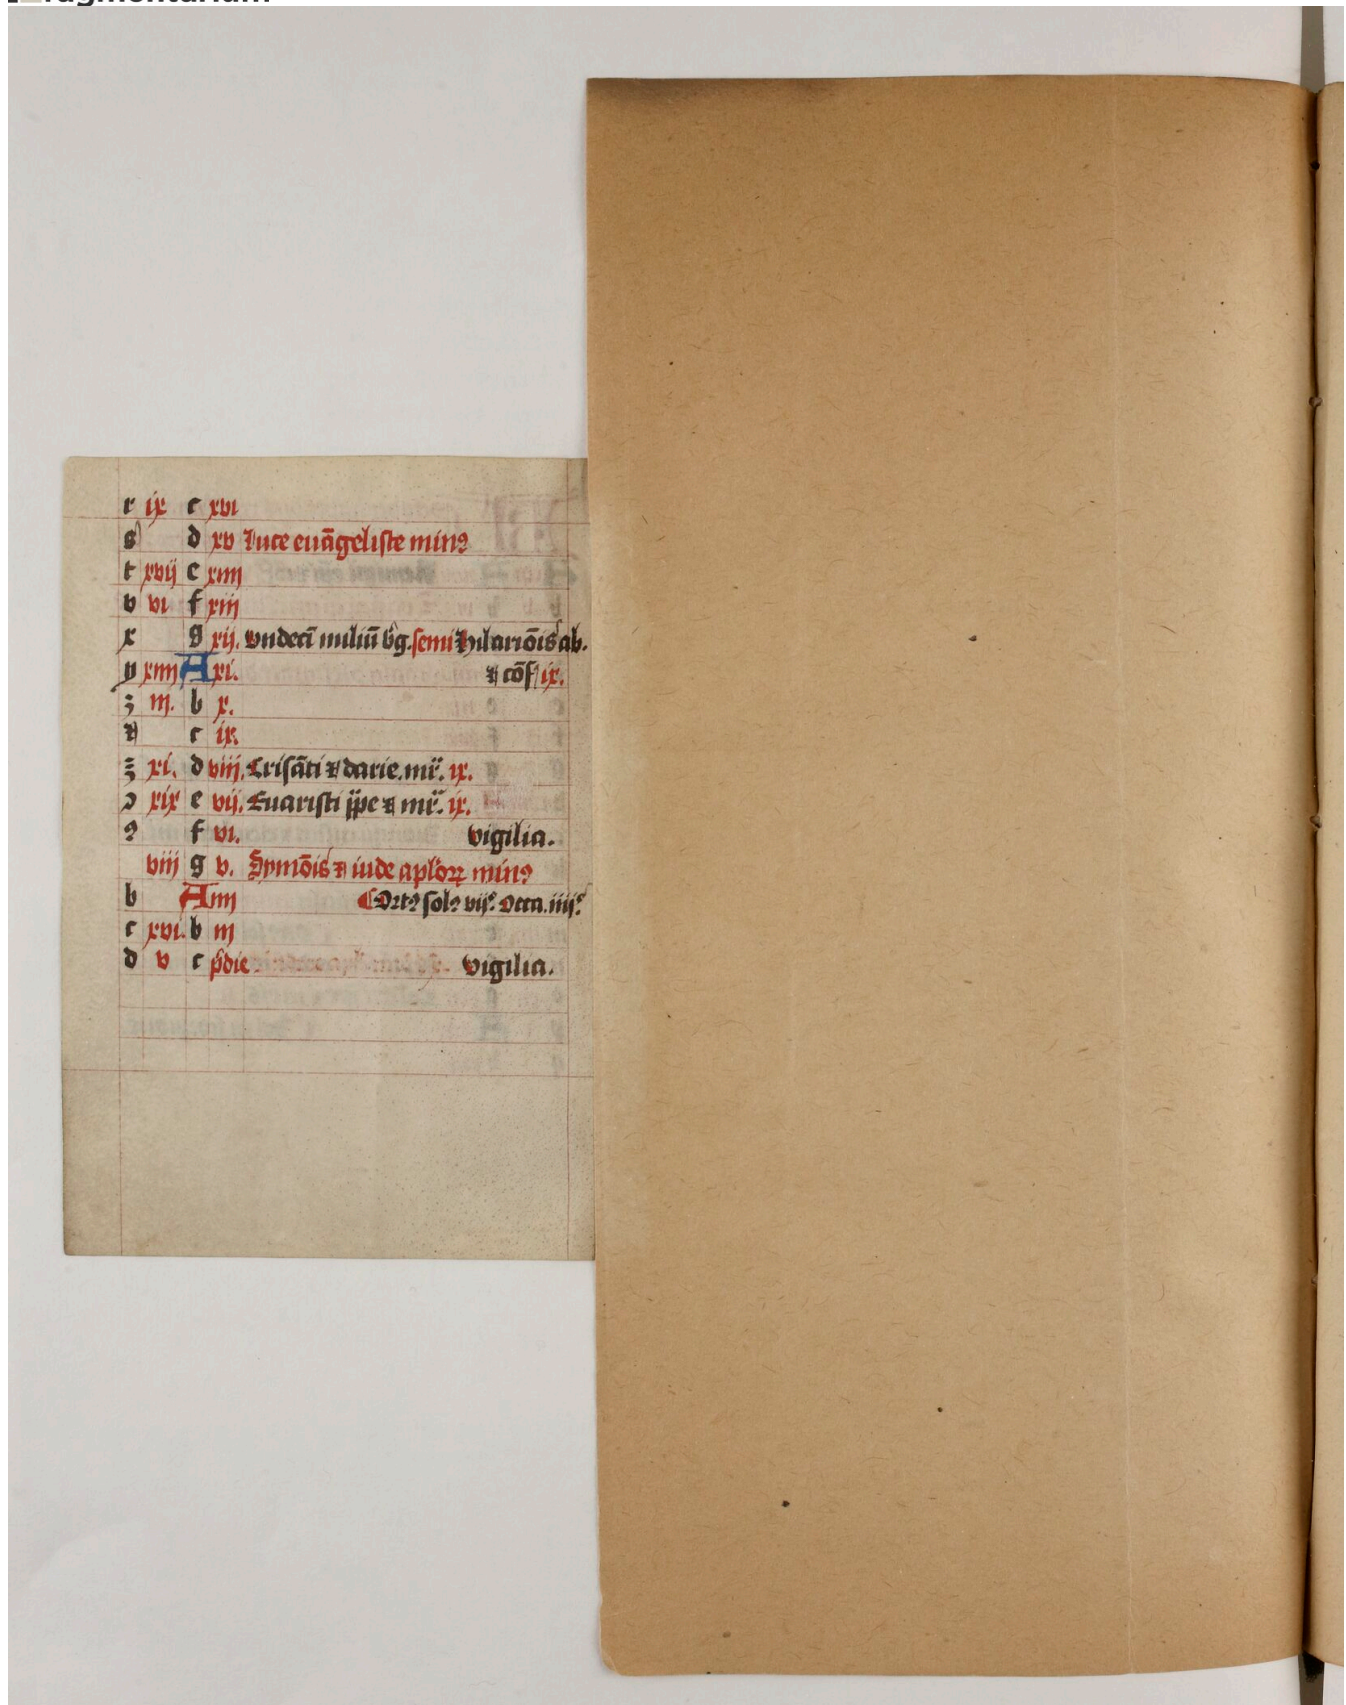 r ix c xvi
s d xv Luce euāgeliste minꝰ
t xvij e xiiii
v vi f xiii
x g xij. vndecī miliū v̄g. semi Hilariōis ab.
y xiiii A xi. ⁊ cōf ix.
ʒ iii. b x.
⁊ c ix.
xi. d viij. Crisāti ⁊ darie. mr̄. ix.
ɔ xix e vij. Euaristi pp̄e ⁊ mr̄. ix.
ꝯ f vi. vigilia.
viij g v. Symōis ⁊ iude apl'oꝝ minꝰ
b A iiii Ortꝰ solꝰ vij. Occa. iiij.
c xvi. b iii
d v c p̄die vigilia.